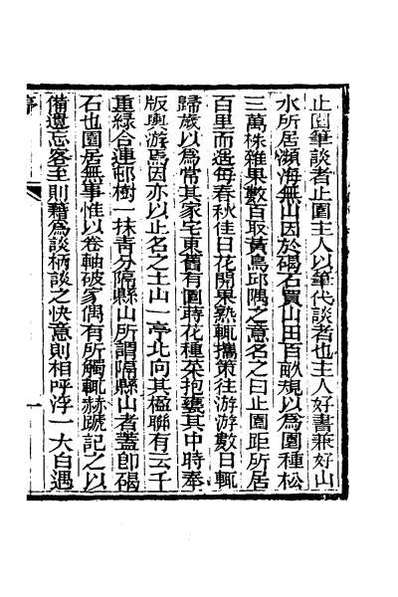 止園筆談者止園主人以筆代談者也主人好書兼好山
水所居瀕海無山因於碣石買山田百畝規以為園種松
三萬株雜果數百取黃鳥邱隅之意名之曰止園距所居
百里而遙每春秋佳日花開果熟輒攜策往游游數日輒
歸歲以為常其家宅東舊有園蒔花種菜抱甕其中時奉
版輿游焉因亦以止名之土山一亭北向其楹聯有云千
重綠合連邨樹一抹青分隔縣山所謂隔縣山者蓋即碣
石也園居無事惟以卷軸破家偶有所觸輒赫蹏記之以
備遺忘客至則藉為談柄談之快意則相呼浮一大白遇